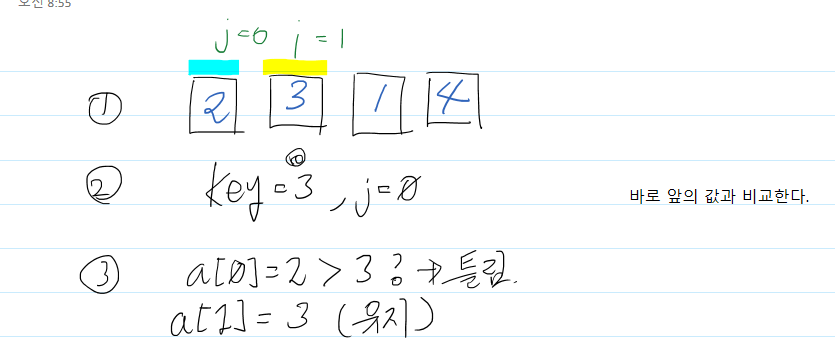 오전 8:55
j=0 i=1
① 2 3 1 4
② key=3, j=0
바로 앞의 값과 비교한다.
③ a[0]=2 > 3 ? → 틀림.
a[1]= 3 (유지)